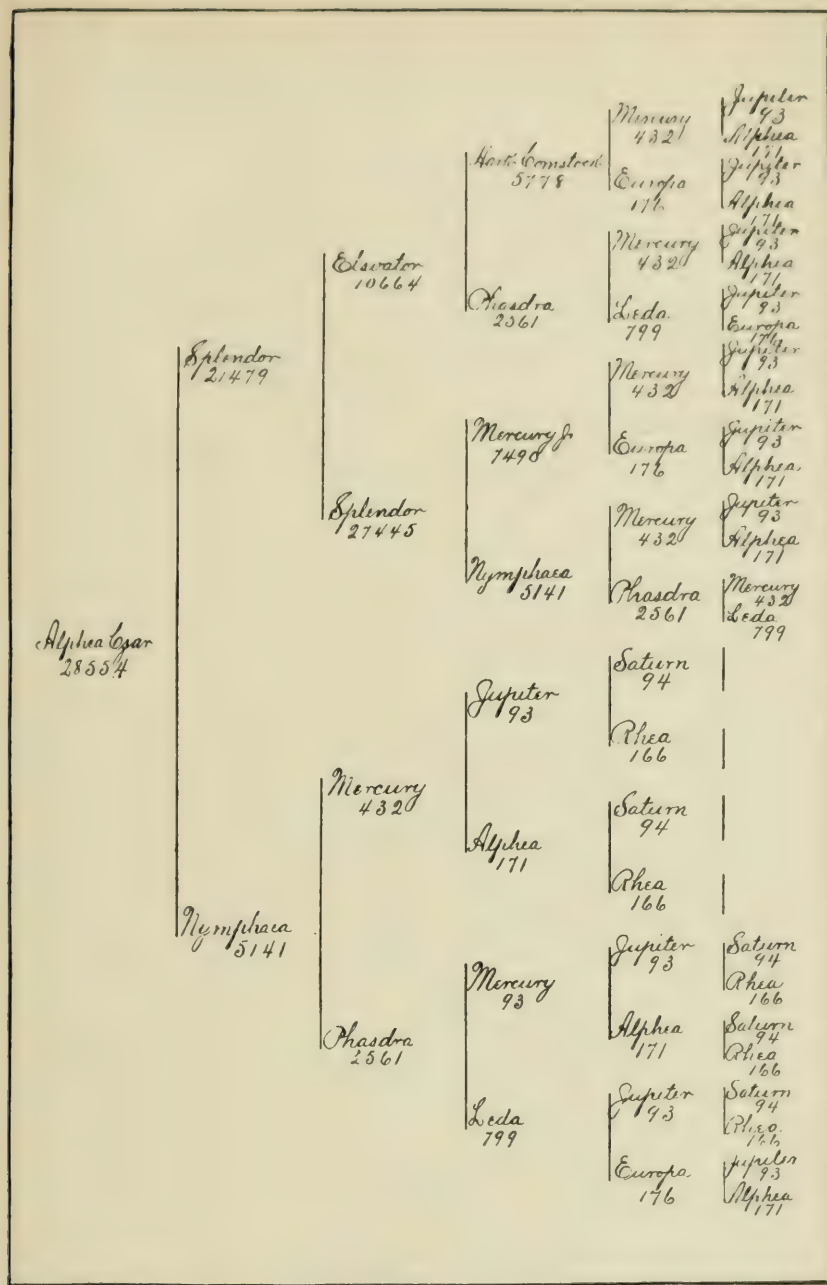 Alphea Czar
28554
Splendor
21479
Nymphaea
5141
Elevator
10664
Splendor
27445
Mercury
432
Phasdra
2561
5778
Phasdra
2561
Mercury Jr
7490
Nymphaea
5141
Jupiter
93
Alphea
171
Mercury
93
Leda
799
Mercury
432
Europa
176
Mercury
432
Leda
799
Mercury
432
Europa
176
Mercury
432
Phasdra
2561
Saturn
94
Rhea
166
Saturn
94
Rhea
166
Jupiter
93
Alphea
171
Jupiter
93
Europa
176
Jupiter
93
Alphea
171
Jupiter
93
Alphea
171
Jupiter
93
Alphea
171
Jupiter
93
Europa
176
Jupiter
93
Alphea
171
Jupiter
93
Alphea
171
Jupiter
93
Alphea
171
Mercury
432
Leda
799
Saturn
94
Rhea
166
Saturn
94
Rhea
166
Saturn
94
Rhea
166
Jupiter
93
Alphea
171